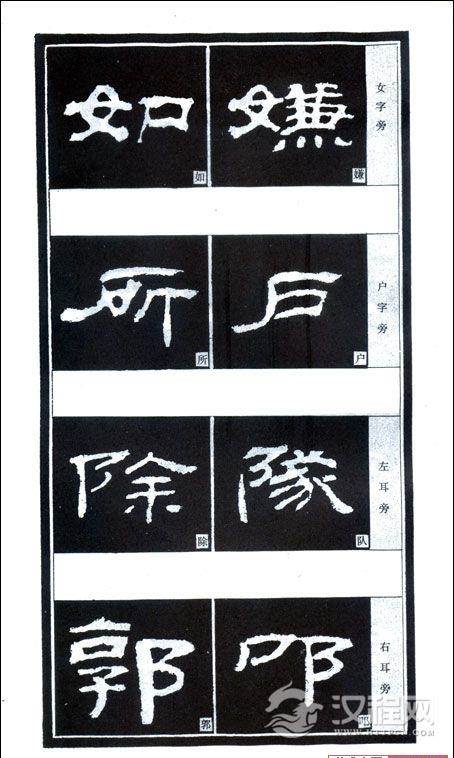 女字旁
嫌
嫌
如
如
户字旁
户
户
所
所
左耳旁
隊
队
除
除
右耳旁
郭
郭
汉程网